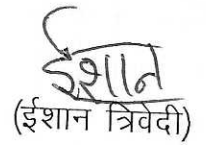 ईशान
(ईशान त्रिवेदी)